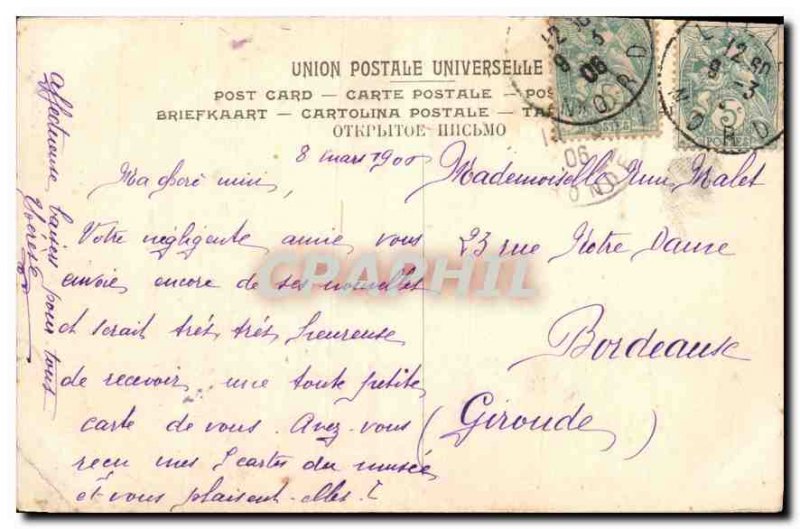 UNION POSTALE UNIVERSELLE
POST CARD — CARTE POSTALE —
BRIEFKAART — CARTOLINA POSTALE —
ОТКРЫТОЕ ПИСЬМО
8 mars 1906
Ma
Votre négligente amie vous
envoie encore de ses nouvelles
et serait très très heureuse
de recevoir une toute petite
carte de vous. Avez-vous
reçu mes 5 cartes du musée
et vous plaisent-elles?
Affectueux baisers pour tous
Mademoiselle Malet
23 rue Notre Dame
Bordeaux
(Gironde)
12 30
9 3
06
NORD
12 30
9 3
NORD
5
06
CPAPHIL